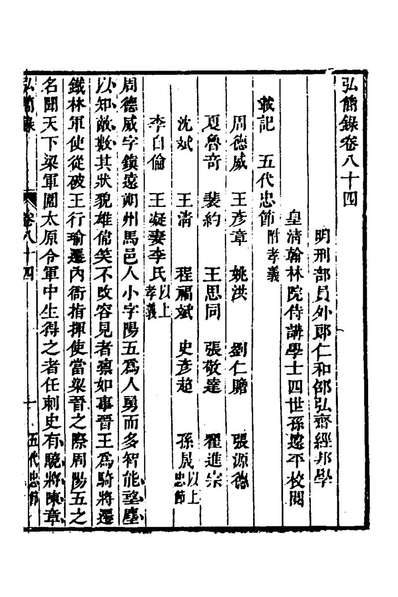 弘簡錄卷八十四
明刑部員外郎仁和邵弘齋經邦學
皇清翰林院侍講學士四世孫遠平校閱
載記 五代忠節附孝義
周德威 王彥章 姚洪 劉仁贍 張源德
夏魯奇 裴約 王思同 張敬達 翟進宗
沈斌 王清 程福斌 史彥超 孫晟以上忠節
李自倫 王凝妻李氏以上孝義
周德威字鎮遠朔州馬邑人小字陽五爲人勇而多智能望塵
以知敵數其狀貌雄偉笑不改容見者凜如事晉王爲騎將遷
鐵林軍使從破王行瑜遷內衙指揮使當梁晉之際周陽五之
名聞天下梁軍圍太原令軍中生得之者任刺史有驍將陳章
弘簡錄 卷八十四 一 五代忠節